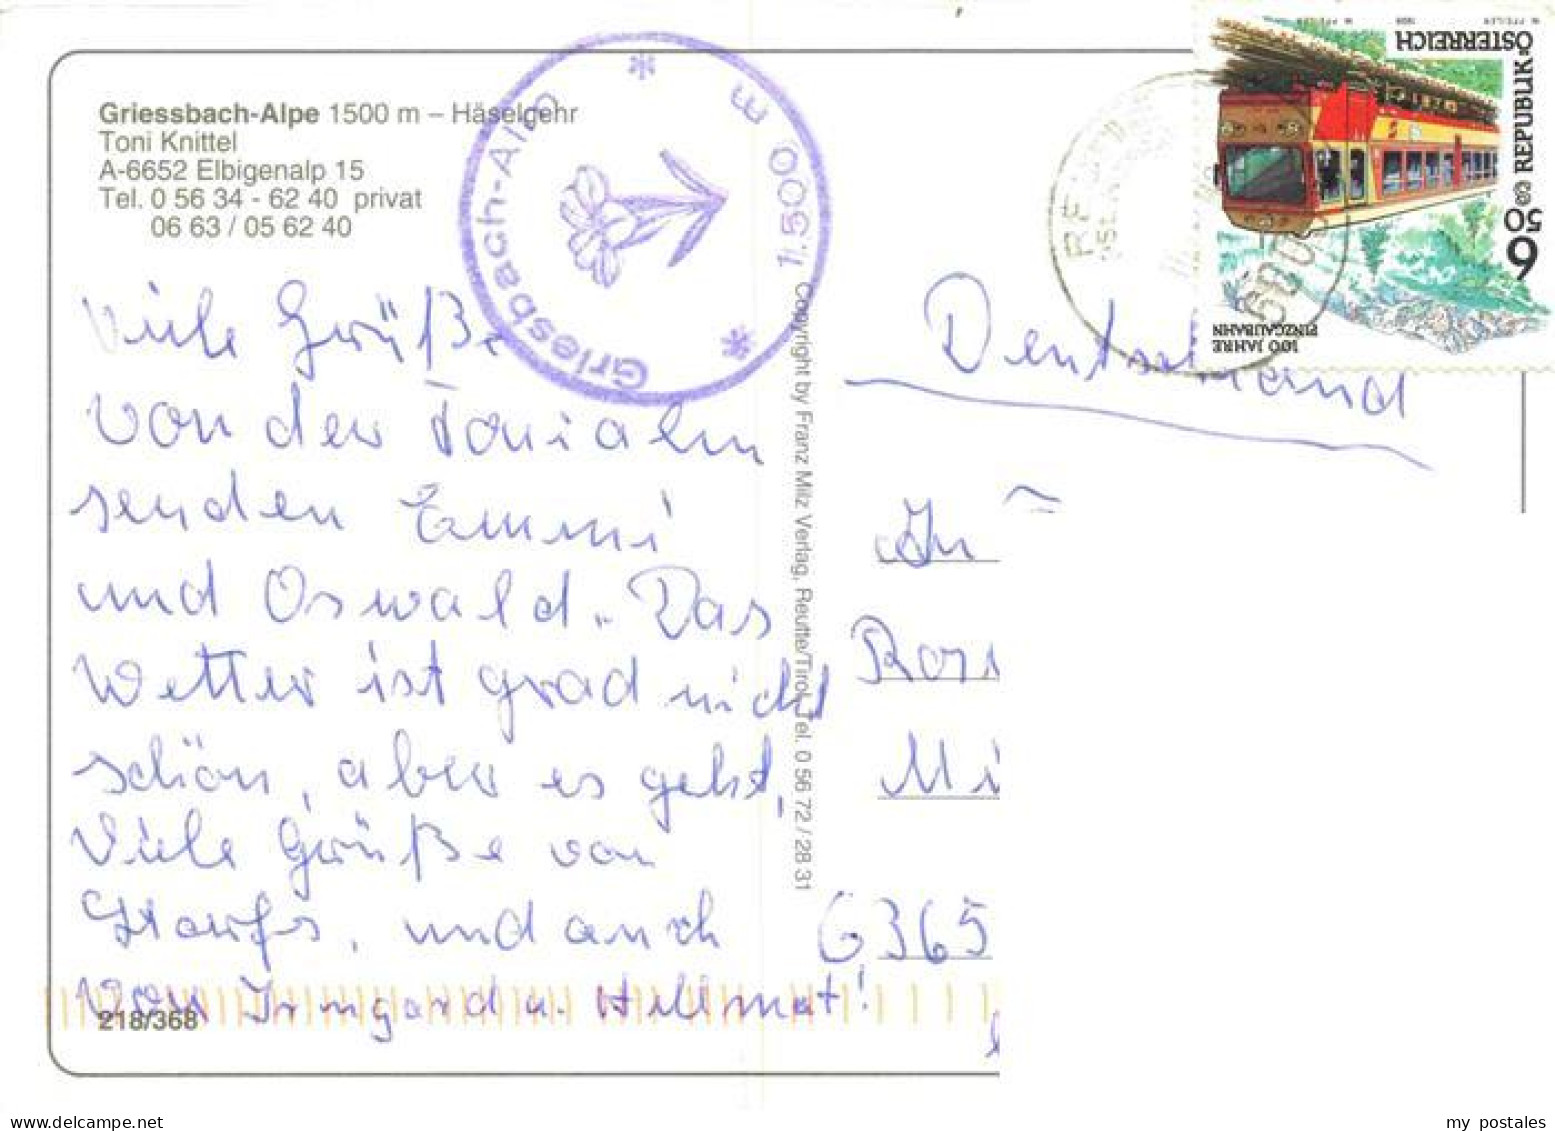 Griessbach-Alpe 1500 m – Häselgehr
Toni Knittel
A-6652 Elbigenalp 15
Tel. 0 56 34 - 62 40 privat
06 63 / 05 62 40
Viele Grüße
von der Tonialm
senden Emmi
und Oswald. Das
Wetter ist grad nicht
schön, aber es geht,
Viele Grüße von
und auch
von Irmgard u. Hellmut!
218/368
Griesbach-Alp
* 1500 m *
Copyright by Franz Milz Verlag, Reutte/Tirol, Tel. 0 56 72 / 28 31
REPUBLIK ÖSTERREICH
6 50
100 JAHRE
PINZGAUBAHN
W. PFEILER 1998 W. PFEILER
6600
Deutschland
Mi
6365
my postales